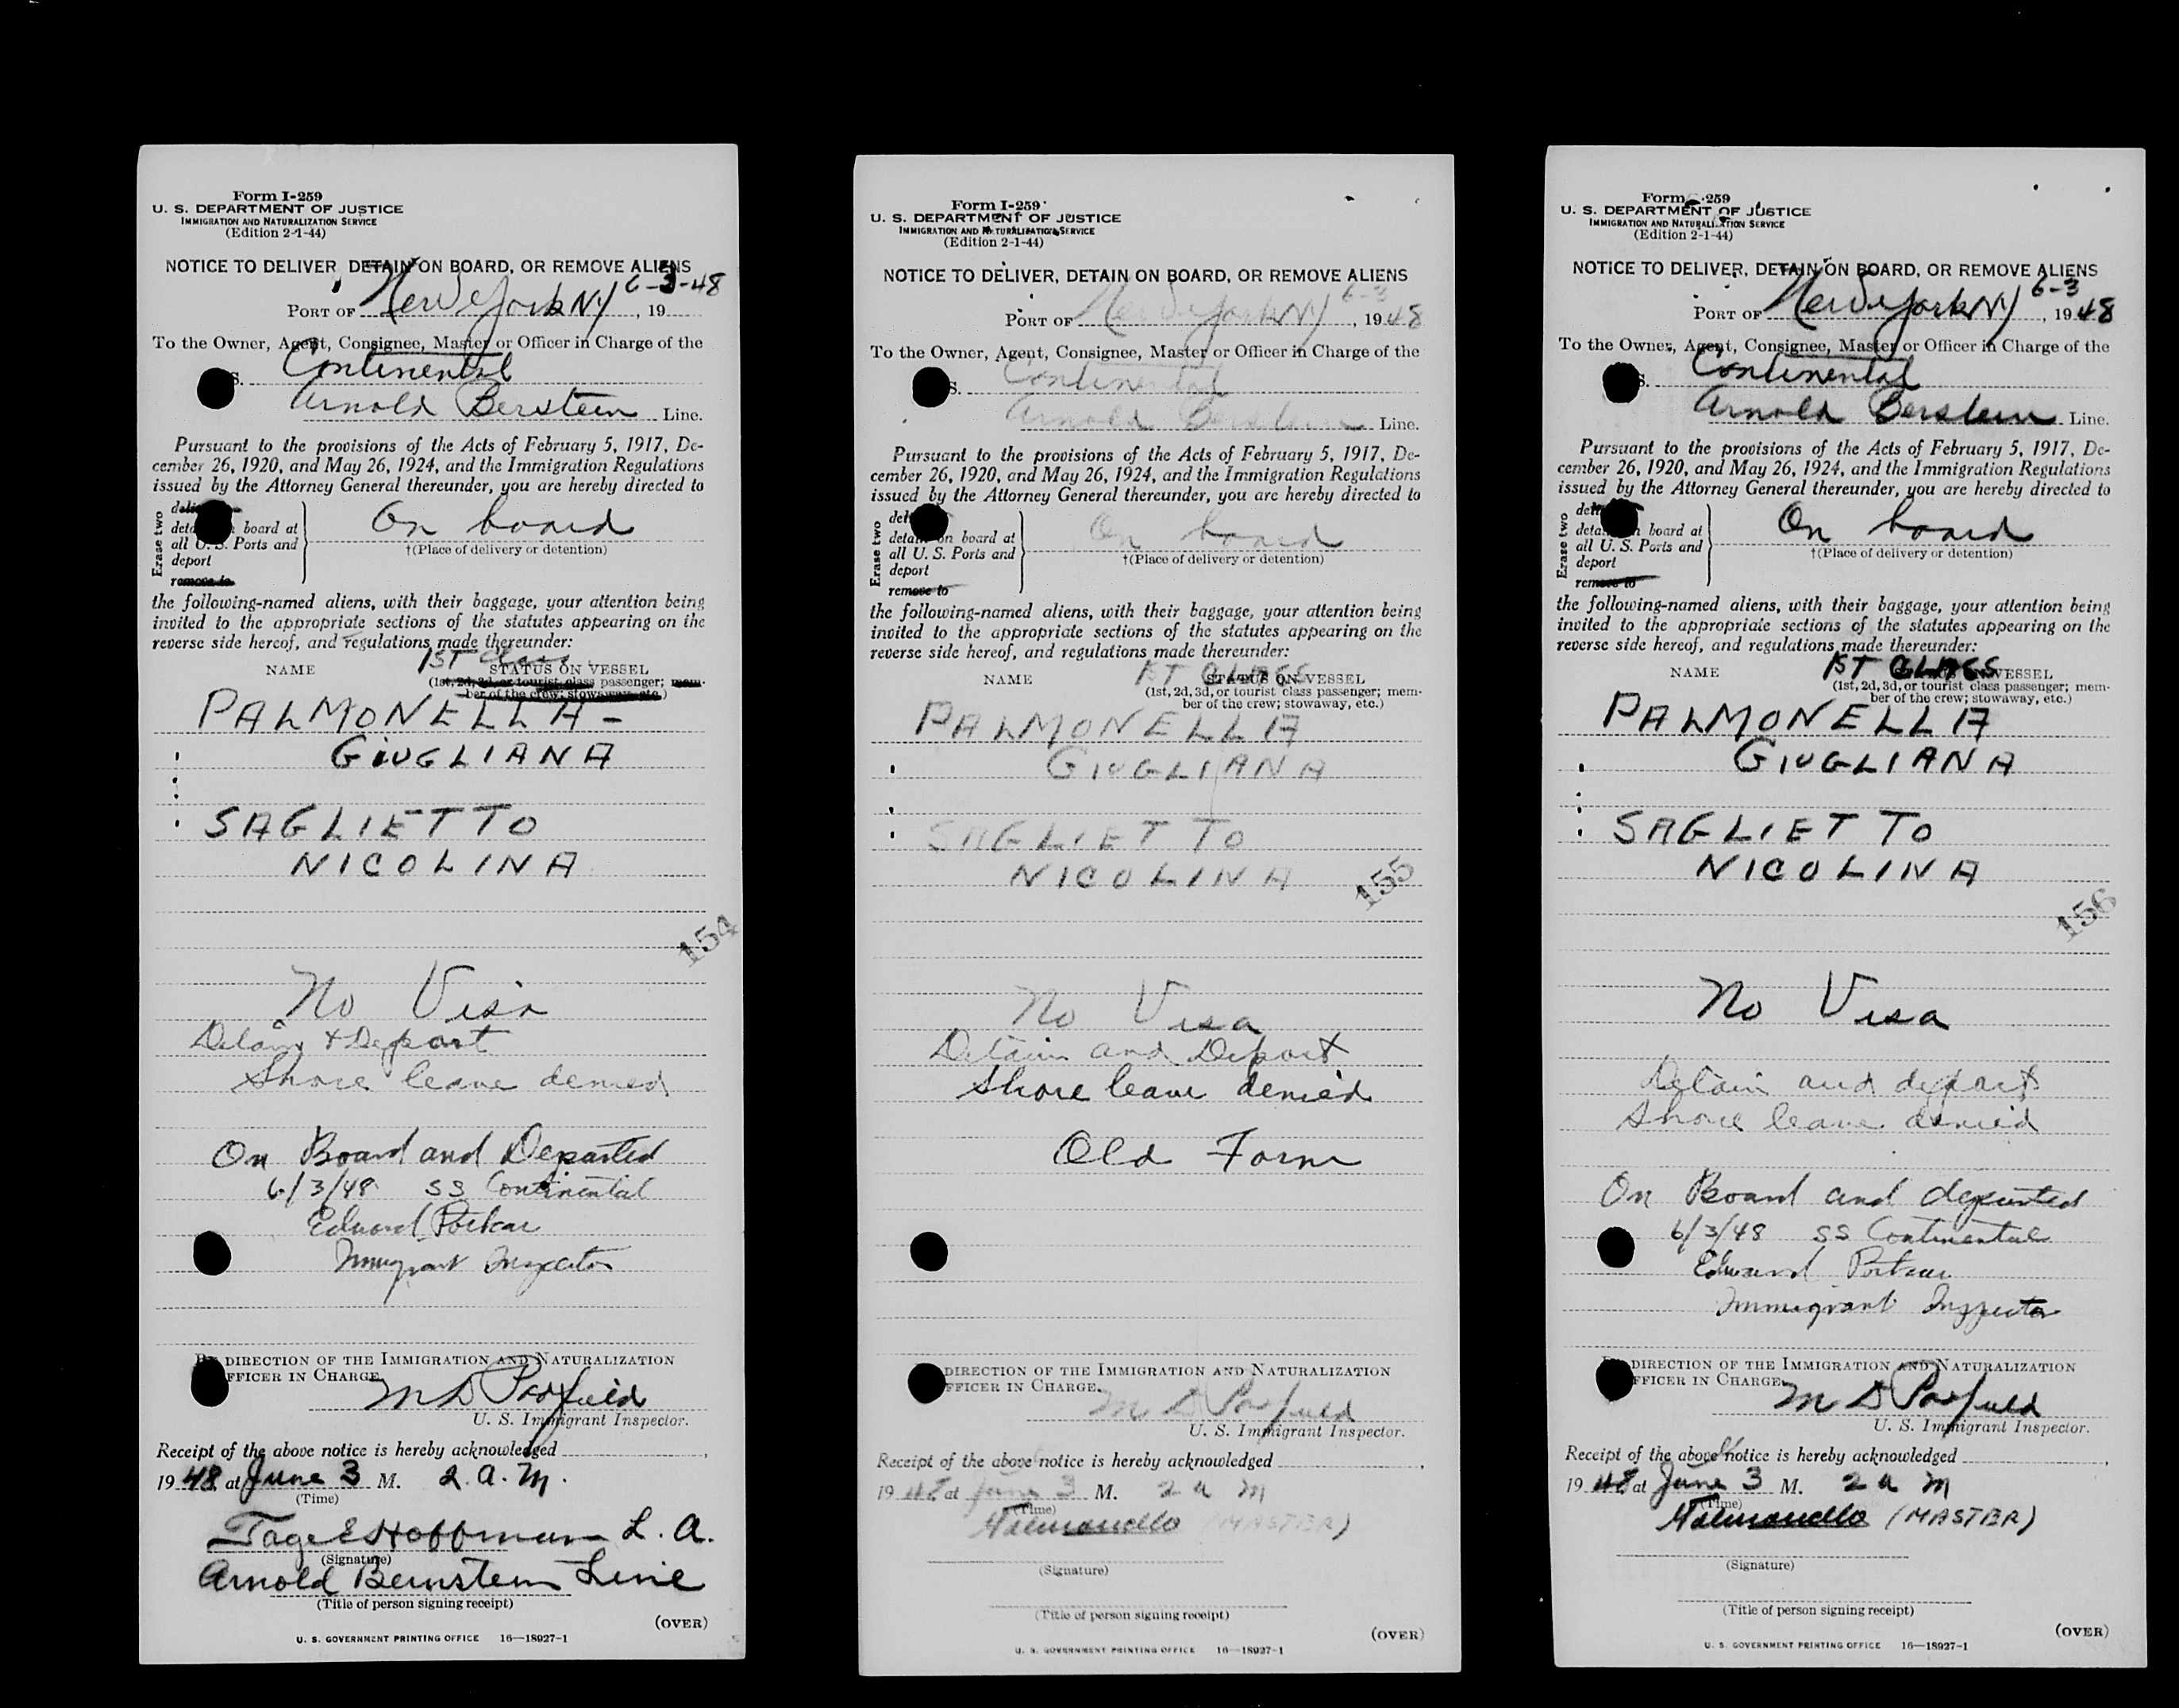 Form I-259
U. S. DEPARTMENT OF JUSTICE
IMMIGRATION AND NATURALIZATION SERVICE
(Edition 2-1-44)
NOTICE TO DELIVER, DETAIN ON BOARD, OR REMOVE ALIENS
6-3-48
PORT OF New York NY, 19
To the Owner, Agent, Consignee, Master or Officer in Charge of the
S. Continental
Arnold Berstein Line.
Pursuant to the provisions of the Acts of February 5, 1917, De-
cember 26, 1920, and May 26, 1924, and the Immigration Regulations
issued by the Attorney General thereunder, you are hereby directed to
Erase two
board at
all U. S. Ports and
deport
remove to
On board
†(Place of delivery or detention)
the following-named aliens, with their baggage, your attention being
invited to the appropriate sections of the statutes appearing on the
reverse side hereof, and regulations made thereunder:
1ST Class
NAME STATUS ON VESSEL
(1st, 2d, 3d, or tourist class passenger; mem-
ber of the crew; stowaway, etc.)
PALMONELLA -
GIUGLIANA
SAGLIETTO
NICOLINA
154
No Visa
Detain & Deport
Shore leave denied
On Board and Departed
6/3/48 SS Continental
Edward
Immigrant Inspector
DIRECTION OF THE IMMIGRATION AND NATURALIZATION
FFICER IN CHARGE.
M D Parfield
U. S. Immigrant Inspector.
Receipt of the above notice is hereby acknowledged
19 48 at June 3 M. 2. a. m.
(Time)
Tage E Hoffman L. A.
(Signature)
Arnold Bernstein Line
(Title of person signing receipt)
(OVER)
U. S. GOVERNMENT PRINTING OFFICE 16—18927-1
Form I-259
U. S. DEPARTMENT OF JUSTICE
IMMIGRATION AND NATURALIZATION SERVICE
(Edition 2-1-44)
NOTICE TO DELIVER, DETAIN ON BOARD, OR REMOVE ALIENS
6-3
PORT OF New York NY, 1948
To the Owner, Agent, Consignee, Master or Officer in Charge of the
S. Continental
Arnold Berstein Line.
Pursuant to the provisions of the Acts of February 5, 1917, De-
cember 26, 1920, and May 26, 1924, and the Immigration Regulations
issued by the Attorney General thereunder, you are hereby directed to
Erase two
detain on board at
all U. S. Ports and
deport
remove to
On board
†(Place of delivery or detention)
the following-named aliens, with their baggage, your attention being
invited to the appropriate sections of the statutes appearing on the
reverse side hereof, and regulations made thereunder:
1ST CLASS
NAME STATUS ON VESSEL
(1st, 2d, 3d, or tourist class passenger; mem-
ber of the crew; stowaway, etc.)
PALMONELLA
GIUGLIANA
SAGLIETTO
NICOLINA
155
No Visa
Detain and Deport
Shore leave denied
Old Form
DIRECTION OF THE IMMIGRATION AND NATURALIZATION
FFICER IN CHARGE.
M D Parfield
U. S. Immigrant Inspector.
Receipt of the above notice is hereby acknowledged
19 48 at June 3 M. 2 a m
(Time)
(MASTER)
(Signature)
(Title of person signing receipt)
(OVER)
U. S. GOVERNMENT PRINTING OFFICE 16—18927-1
Form 259
U. S. DEPARTMENT OF JUSTICE
IMMIGRATION AND NATURALIZATION SERVICE
(Edition 2-1-44)
NOTICE TO DELIVER, DETAIN ON BOARD, OR REMOVE ALIENS
6-3
PORT OF New York NY, 1948
To the Owner, Agent, Consignee, Master or Officer in Charge of the
S. Continental
Arnold Berstein Line.
Pursuant to the provisions of the Acts of February 5, 1917, De-
cember 26, 1920, and May 26, 1924, and the Immigration Regulations
issued by the Attorney General thereunder, you are hereby directed to
Erase two
board at
all U. S. Ports and
deport
remove to
On board
†(Place of delivery or detention)
the following-named aliens, with their baggage, your attention being
invited to the appropriate sections of the statutes appearing on the
reverse side hereof, and regulations made thereunder:
1ST CLASS
NAME VESSEL
(1st, 2d, 3d, or tourist class passenger; mem-
ber of the crew; stowaway, etc.)
PALMONELLA
GIUGLIANA
SAGLIETTO
NICOLINA
156
No Visa
Detain and deport
Shore leave denied
On Board and departed
6/3/48 SS Continental
Edward
Immigrant Inspector
DIRECTION OF THE IMMIGRATION AND NATURALIZATION
FFICER IN CHARGE.
M D Parfield
U. S. Immigrant Inspector.
Receipt of the above notice is hereby acknowledged
19 48 at June 3 M. 2 a m
(Time)
(MASTER)
(Signature)
(Title of person signing receipt)
(OVER)
U. S. GOVERNMENT PRINTING OFFICE 16—18927-1